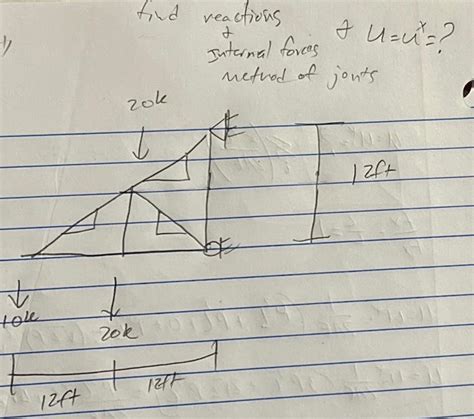 find reactions
&
Internal forces & u=u^x=?
method of joints
20k
12ft
10k
20k
12ft 12ft